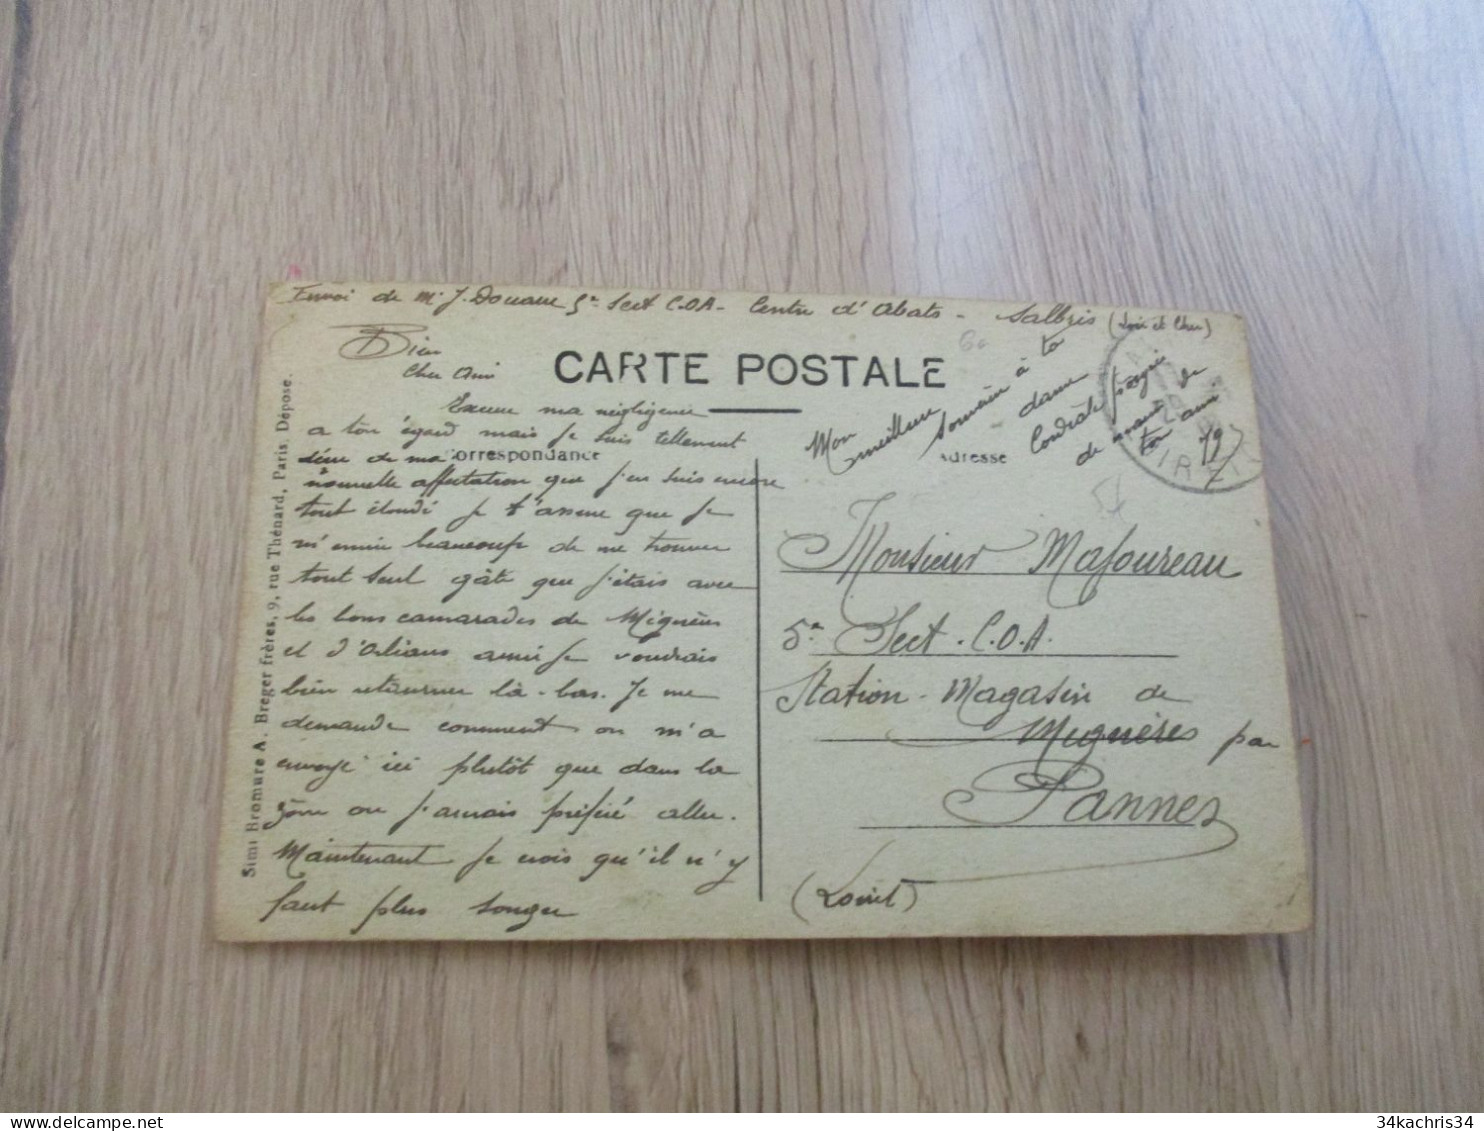 Envoi de Mr J. Douane 5e Sect C.O.A - Centre d'Abats - Salbris (Loir et Cher)
Bien
Cher Ami
CARTE POSTALE
Excuse ma négligence
a ton égard mais je suis tellement
de ma
Correspondance
nouvelle affectation que j'en suis encore
tout je t'assure que je
m'ennuie beaucoup de me trouver
tout seul gâté que j'étais avec
les bons camarades de Mignères
et d'Orléans aussi je voudrais
bien retourner là-bas. Je me
demande comment on m'a
envoyé ici plutôt que dans la
zône ou j'aurais préféré aller.
Maintenant je crois qu'il n'y
faut plus songer
Mon meilleur
souvenir à ta
dame
Cordiale poignée
de main de
ton ami
Adresse
Monsieur Majoureau
5e Sect. C.O.A.
Station-Magasin de
Mignères par
Pannes
(Loiret)
Simi Bromure A. Breger frères, 9, rue Thénard, Paris. Déposé.
34kachris34